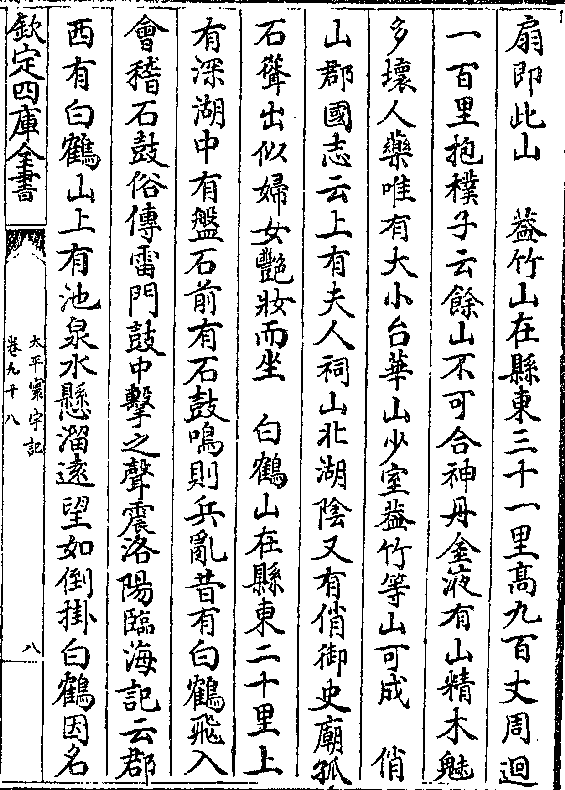 扇即此山　葢竹山在縣東三十一里髙九百丈周迴
一百里抱樸子云餘山不可合神丹金液有山精木魅
多壞人藥唯有大小台華山少室葢竹等山可成　俏
山郡國志云上有夫人祠山北湖陰又有俏御史廟孤
石聳出似婦女艷妝而坐　白鶴山在縣東二十里上
有深湖中有盤石前有石鼓鳴則兵亂昔有白鶴飛入
會稽石鼓俗傳雷門鼓中擊之聲震洛陽臨海記云郡
西有白鶴山上有池泉水懸溜遠望如倒掛白鶴因名
欽定四庫全書
太平寰宇記
卷九十八
八